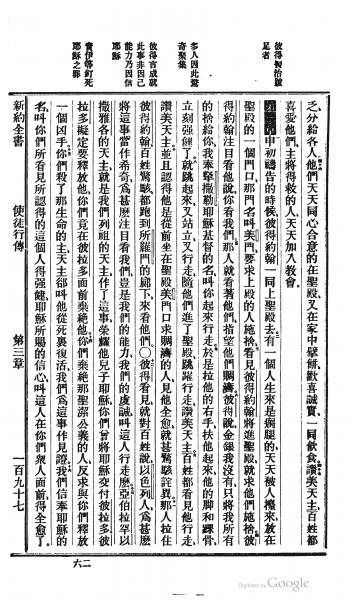 彼得醫治跛
足者
多人因此驚
奇聚集
彼得言成就
此事非因己
能力乃因信
耶穌
責伊等釘死
耶穌之罪
乏分給各人他們天天同心合意的在聖殿又在家中擘餅歡喜誠實一同飲食讚美天主百姓都
喜愛他們主將得救的人天天加入教會
第三章申初禱告的時候彼得約翰一同上聖殿去有一個人生來是瘸腿的天天被人擡來放在
聖殿的一個門口那門名叫美門要求上殿的人施捨看見彼得約翰將進聖殿就求他們施捨彼
得約翰注目看他說你看我們那人就看著他們指望他們賙濟彼得說金銀我沒有只將我所有
的捨給你我奉拿撒勒耶穌基督的名叫你起來行走於是拉他的右手扶他起來他的腳和踝骨
立刻強健了就跳起來又站立又行走隨他們進了聖殿跳躍行走讚美天主百姓都看見他行走
讚美天主並且認得他是從前坐在聖殿美門口求賙濟的人見他全愈就甚驚駭詫異那人拉住
彼得約翰百姓驚駭都跑到所羅門的廊下來看他們○彼得看見就對百姓說以色列人爲甚麽
將這事當作希奇爲甚麽注目看我們豈是我們的能力我們的虔誠叫這人行走麽亞伯拉罕以
撒雅各的天主就是我們列祖的天主作了這事榮耀他兒子耶穌你們曾將耶穌交付彼拉多彼
拉多擬定要釋放他你們竟在彼拉多面前棄絕他你們棄絕那聖潔公義的人反求與你們釋放
一個凶手你們殺了那生命的主天主卻叫他從死裏復活我們爲這事作見證我們信奉耶穌的
名叫你們所看見所認得的這個人得強健耶穌所賜的信心叫這人在你們衆人面前得全愈了
新約全書 使徒行傳 第三章 一百九十七
六二
Digitized by Google